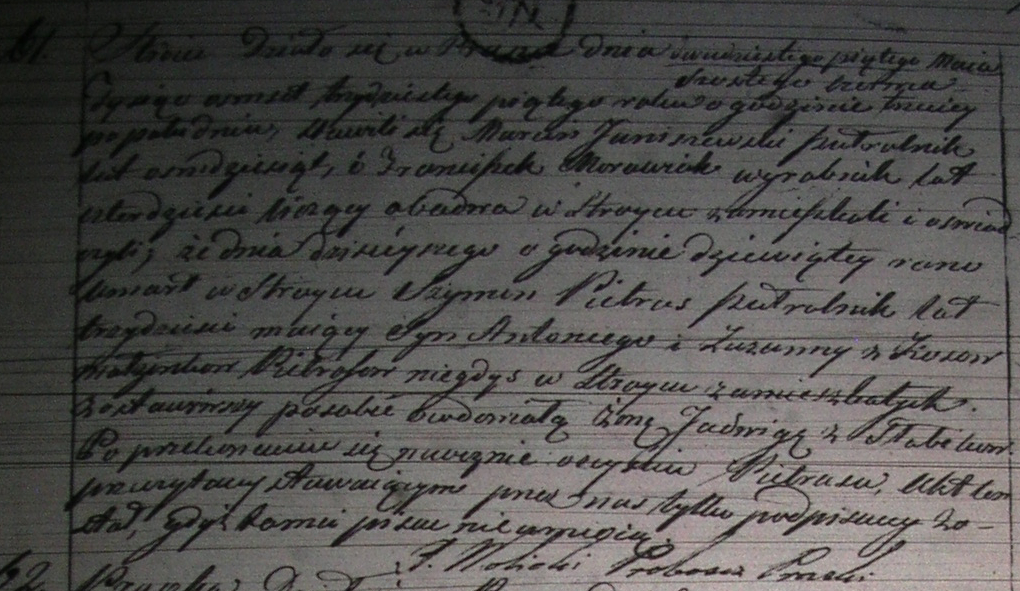 61. Działo się w dnia dwudziestego piątego Marca
Szóstego Czerwca
Tysiąc osmset trzydziestego piątego roku o godzinie trzeciy
popołudniu, stawili się Marcin Janiszewski pułrolnik
lat osmdziesiąt, i Franciszek Morawiak wyrobnik lat
czterdzieści liczący obadwa w Stroycu zamieszkali i oswiad
czyli; iż dnia dzisieyszego o godzinie dziewiątey rano
umarł w Stroycu Szymon Pietras pułrolnik lat
trzydzieści maiący Syn Antoniego i Zuzanny z Kosów
małżonków Pietrasów niegdys w Stroycu zamieszkałych.
Zostawiwszy posobie owdowiałą żonę Jadwigę z
Po przekonaniu się naocznie o zeyściu Pietrasa, Akt ten
przeczytany stawaiącym przez nas tylko podpisany zo-
stał, gdyż tamci pisać nie umieią.
Proboszcz
62.